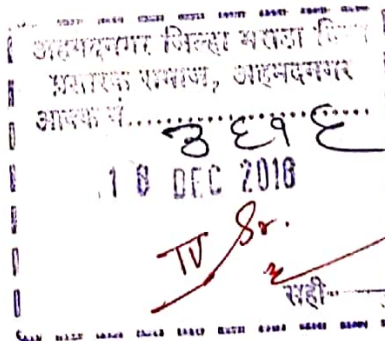 अहमदनगर जिल्हा मराठा विद्या
प्रसारक समाज, अहमदनगर
आवक नं..................
३६१६
DEC 2016
IV Sr.
सही